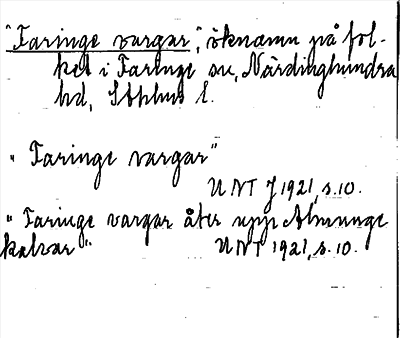 "Faringe vargar", öknamn på fol-
ket i Faringe sn, Närdinghundra
hd, Sthlms l.
"Faringe vargar"
UNT J 1921, s. 10.
"Faringe vargar åter upp Almunge
kalvar"    UNT 1921, s. 10.